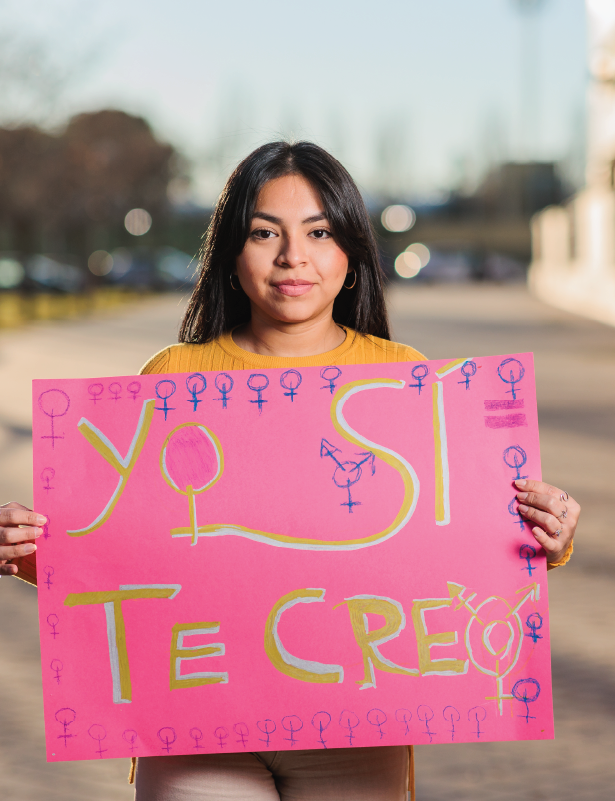 YO SÍ
TE CREO